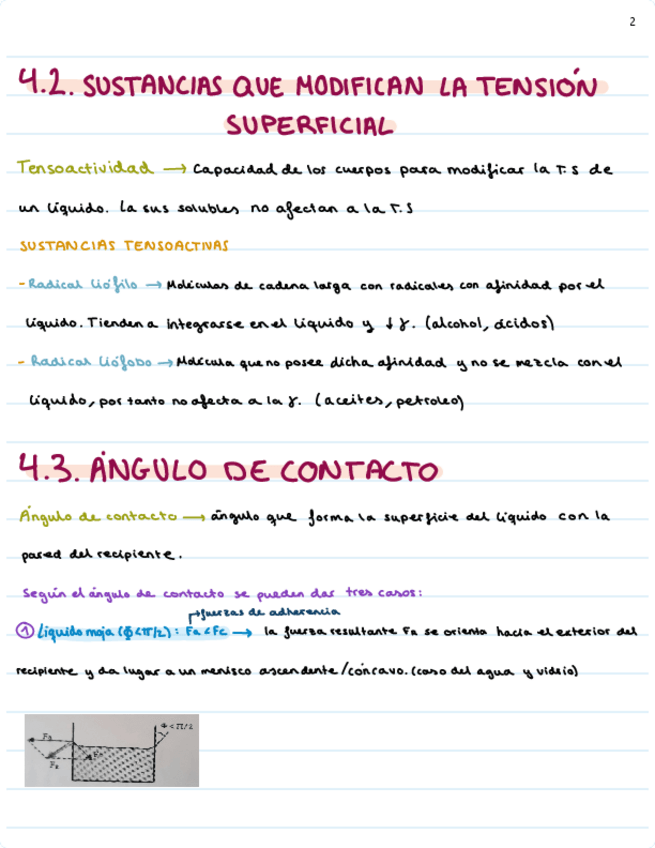 2
4.2. SUSTANCIAS QUE MODIFICAN LA TENSIÓN
SUPERFICIAL
Tensoactividad → Capacidad de los cuerpos para modificar la T.S de
un líquido. La sus solubles no afectan a la T.S
SUSTANCIAS TENSOACTIVAS
- Radical liófilo → Moléculas de cadena larga con radicales con afinidad por el
líquido. Tienden a integrarse en el líquido y ↓ γ. (alcohol, ácidos)
- Radical liófobo → Molécula que no posee dicha afinidad y no se mezcla con el
líquido, por tanto no afecta a la γ. (aceites, petroleo)
4.3. ÁNGULO DE CONTACTO
Ángulo de contacto → ángulo que forma la superficie del líquido con la
pared del recipiente.
Según el ángulo de contacto se pueden dar tres casos:
→fuerzas de adherencia
① Líquido moja (Φ<π/2): Fa<Fc → la fuerza resultante FR se orienta hacia el exterior del
recipiente y da lugar a un menisco ascendente/cóncavo. (caso del agua y vidrio)
Φ<π/2